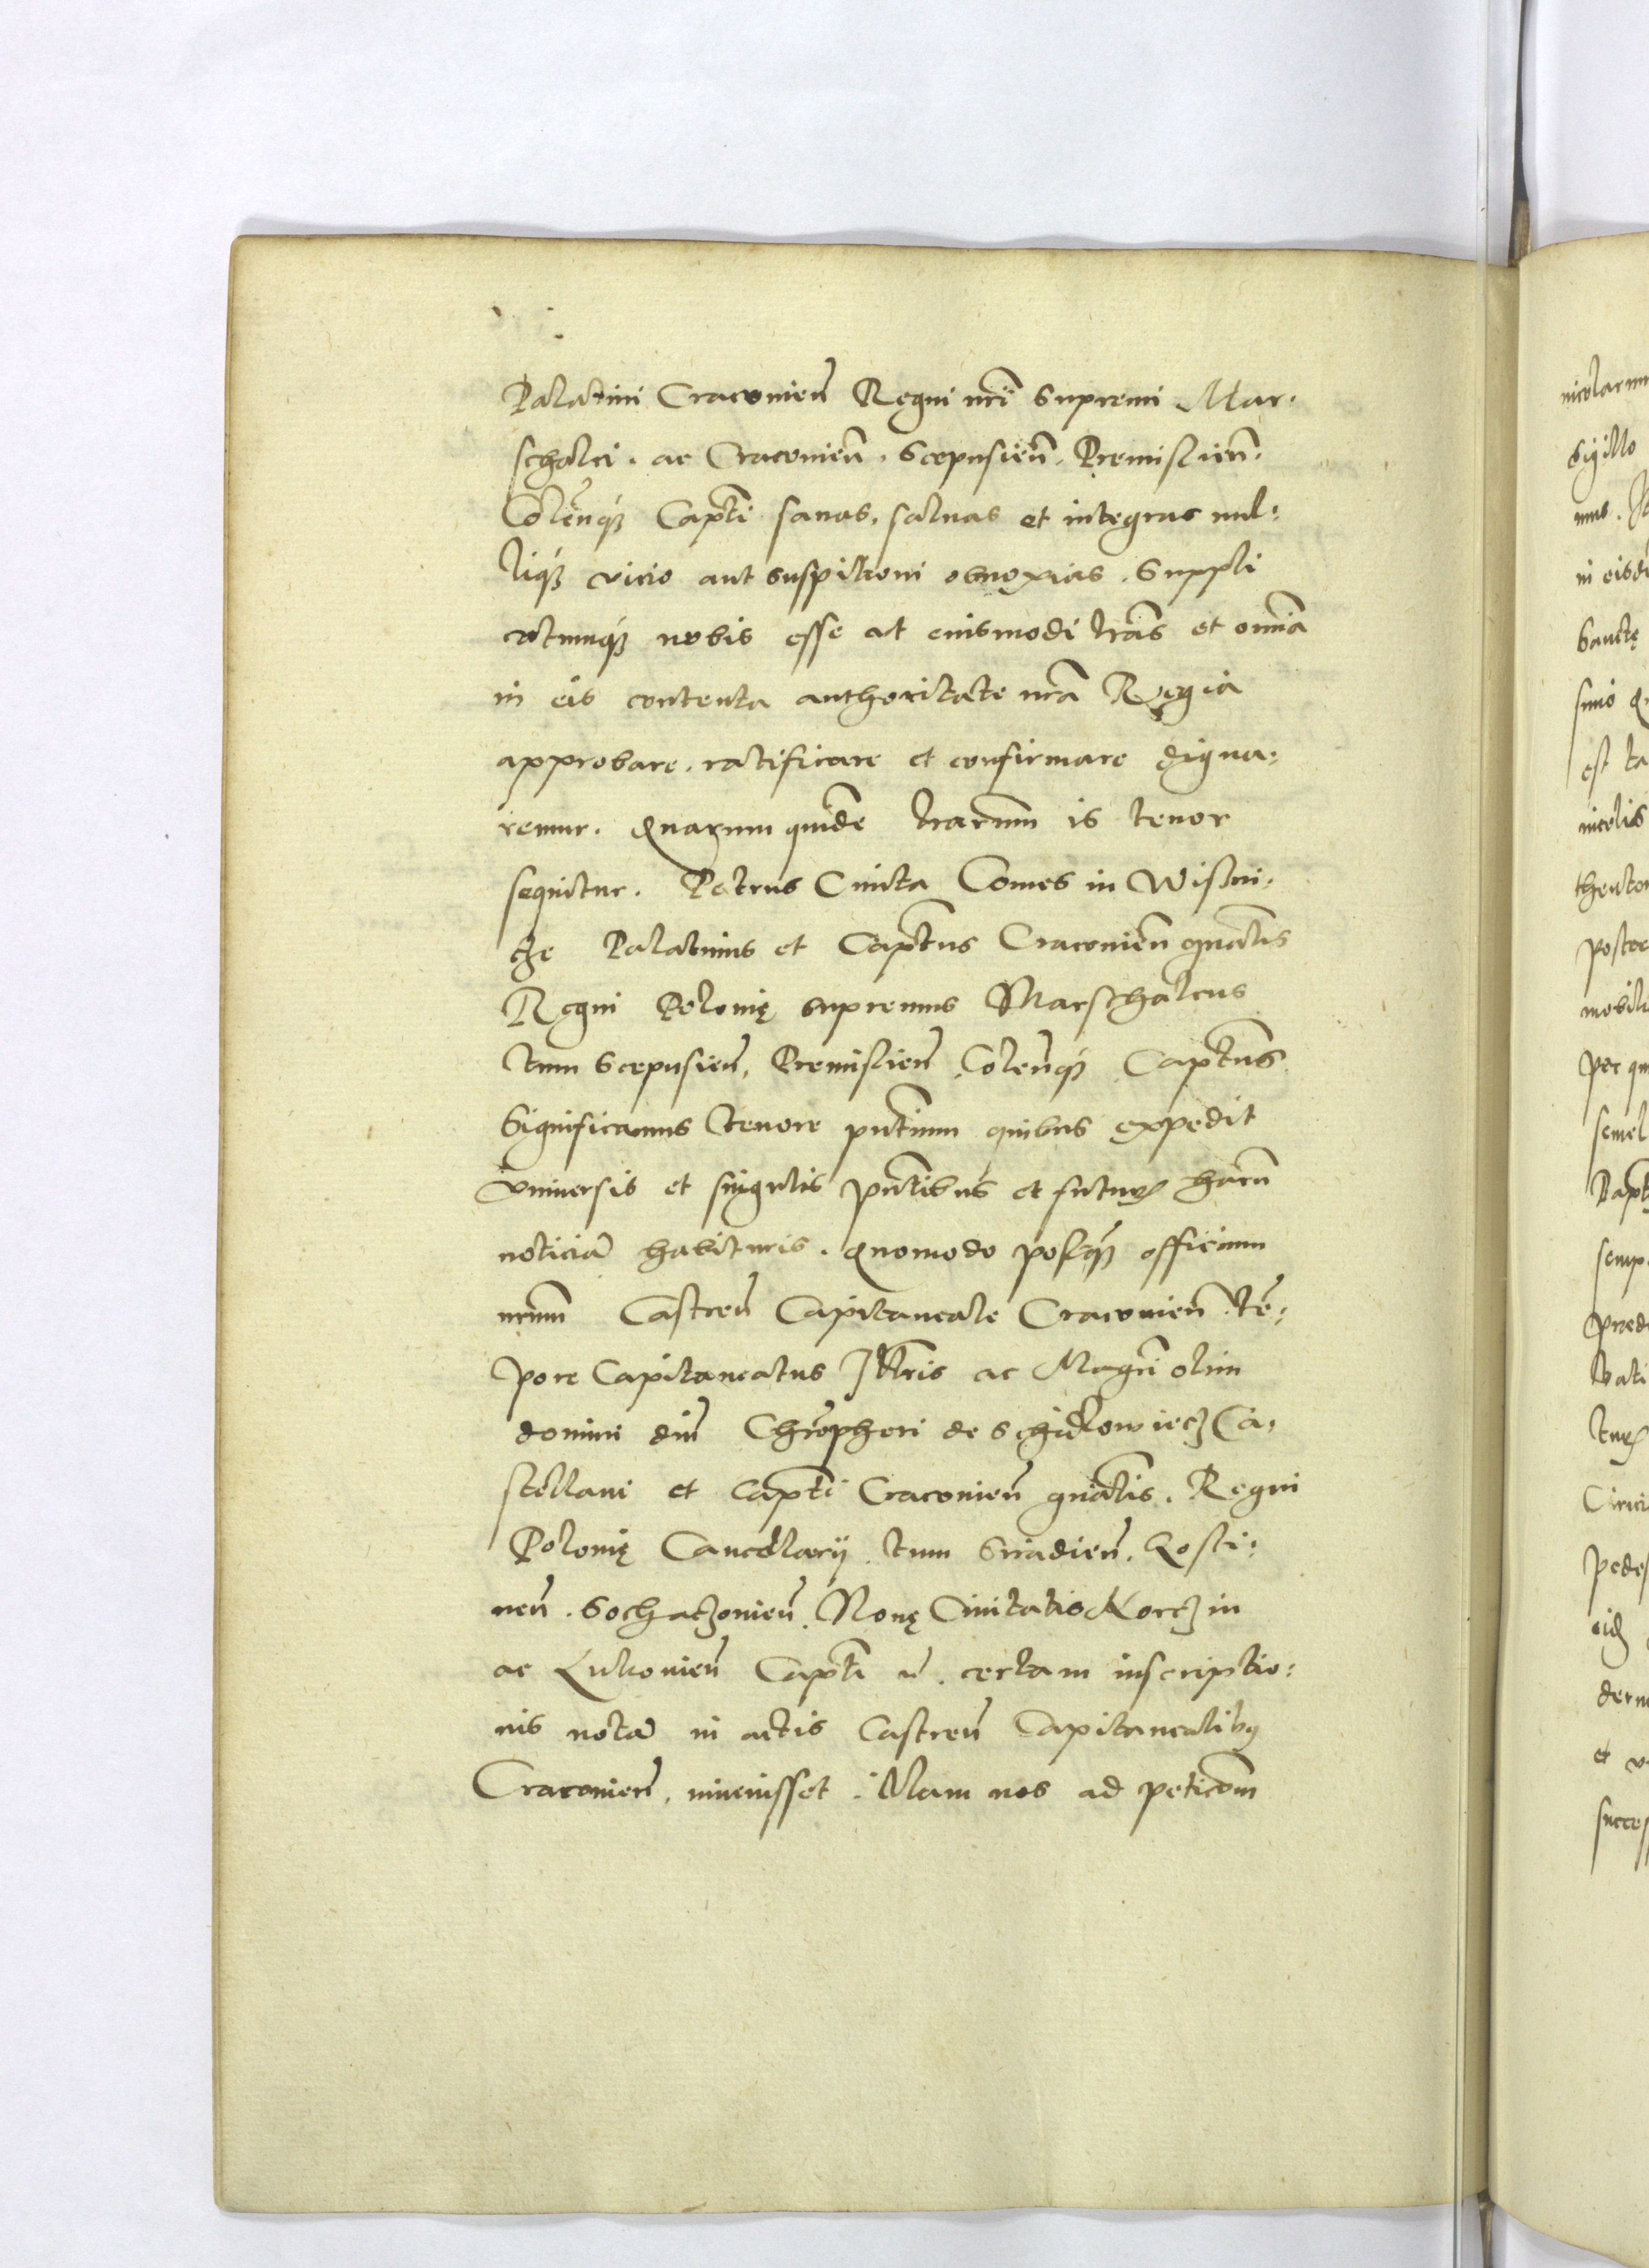 Palatini Cracouień Regni nr̃i Supremi Mar:
schalci. ac Cracouień. Scepusień. Premislień.
Coleńq3 Capti sanas, saluas et integras nul:
liq3 vicio aut suspitioni obnoxias. Suppli
catumq3 nobis esse ut eiusmodi lrãs et om̃ia
in eis contenta authoritate nrã Regia
approbare. ratificare et confirmare digna:
remur. Quarum quidẽ lrarum is tenor
sequitur. Petrus Cmita Comes in Wisni:
cze Palatinus et Captus Cracouień gn̄alis
Regni Polonię supremus Marschalcus
tum Scepusień, Premislień Coleńq3 Captus
Significamus tenore pn̄tium quibus expedit
vniuersis et singulis pn̄tibus et futuris harũ
noticiã habituris. Quomodo postq3 officium
nrũm Castreń Capitaneale Cracouień tẽ:
pore Capitaneatus Illtris ac Magci olim
domini dñi Chrõpheri de Schidlowiecz Ca:
stellani et Capti Cracouień gn̄alis. Regni
Polonię Cancellarij. tum Siradień. Gosti:
neń. Sochaczouień. Nouę Ciuitatis Korczin
ac Lukouień Capti ñ. certam inscriptio:
nis notã in actis Castreń Capitanealibus
Cracouień, inuenisset. Illam nos ad peticom̃
nicolarum
Sigillo
mus.
in eisdẽ
Sanctę
simo
est ta
nicolis
poster
mobili
per qu
semel
Bapt
semp
pred
vati
pedes
eid
et
succes